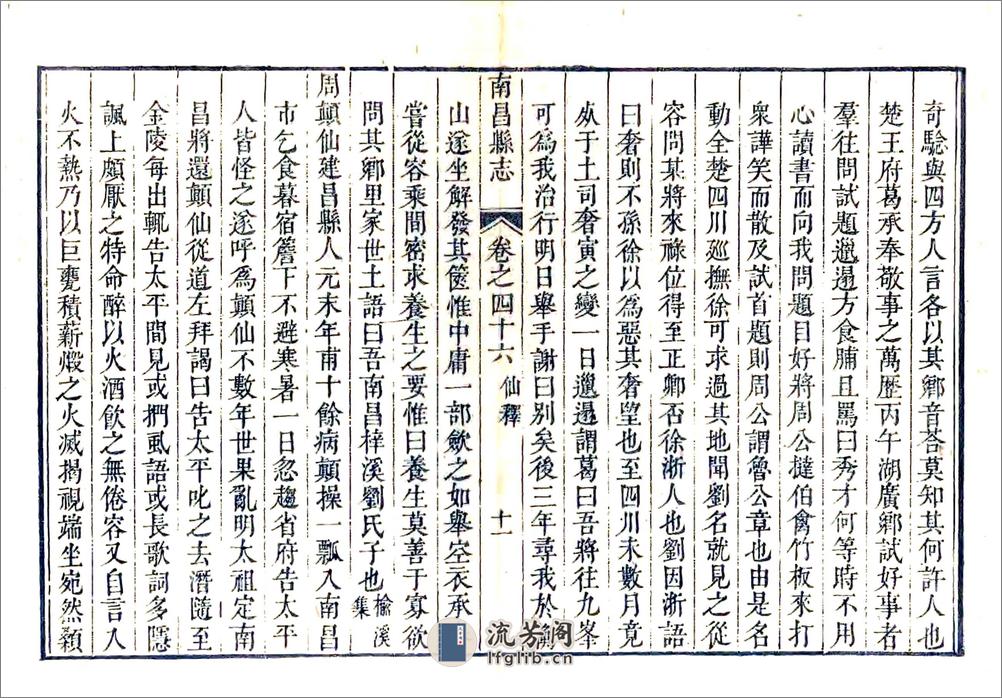 奇驗與四方人言各以其鄉音荅莫知其何許人也
楚王府葛承奉敬事之萬歷丙午湖廣鄉試好事者
羣往問試題邋遢方食脯且罵曰秀才何等時不用
心讀書而向我問題目好將周公撻伯禽竹板來打
衆譁笑而散及試首題則周公謂魯公章也由是名
動全楚四川廵撫徐可求過其地聞劉名就見之從
容問某將來祿位得至正卿否徐浙人也劉因浙語
曰奢則不孫徐以爲惡其奢望也至四川未數月竟
歿于土司奢寅之變一日邋遢謂葛曰吾將往九峯
可爲我治行明日舉手謝曰别矣後三年尋我於
南昌縣志
卷之四十六
仙釋
十一
山遂坐解發其篋惟中庸一部歛之如舉空衣承
嘗從容乘間密求養生之要惟曰養生莫善于寡欲
問其鄉里家世土語曰吾南昌梓溪劉氏子也
榆溪集
周顛仙建昌縣人元末年甫十餘病顛操一瓢入南昌
市乞食暮宿簷下不避寒暑一日忽趨省府告太平
人皆怪之遂呼爲顛仙不數年世果亂明太祖定南
昌將還顛仙從道左拜謁曰告太平叱之去潛隨至
金陵每出輒告太平間見或捫虱語或長歌詞多隱
諷上頗厭之特命醉以火酒飲之無倦容又自言入
火不熱乃以巨甕積薪煅之火滅揭視端坐宛然顙
流芳閣
lfglib.cn